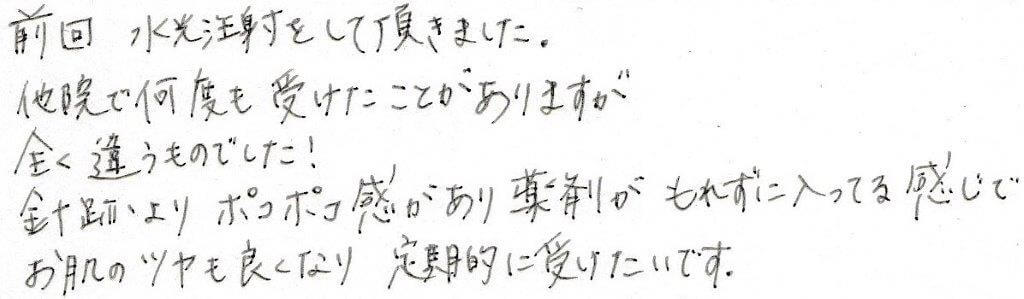 前回 水光注射をして頂きました。
他院で何度も受けたことがありますが
全く違うものでした!
針跡より ポコポコ感があり薬剤が もれずに入ってる感じで
お肌のツヤも良くなり 定期的に受けたいです。